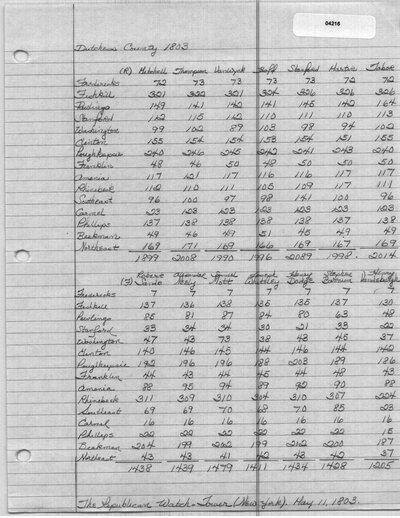 04216
Dutchess County 1803
(R) Mitchell Thompson VanWyck Huff Stanford Hustis Tabor
Fredericks 72 73 73 73 73 72 72
Fishkill 321 322 321 324 326 326 326
Pawlings 149 141 142 141 145 142 164
Stanford 112 115 112 110 111 110 113
Washington 99 102 89 103 98 94 102
Clinton 155 154 154 153 154 151 155
Poughkeepsie 240 246 245 242 241 243 240
Franklin 48 46 50 48 50 50 50
Amenia 117 121 117 116 116 117 117
Rhinebeck 112 110 111 105 109 117 111
Southeast 96 100 97 98 141 100 96
Carmel 123 128 123 123 123 123 123
Phillips 137 138 138 138 138 137 138
Beekman 49 46 49 51 45 49 49
Northeast 169 171 169 166 169 167 169
1899 2008 1990 1996 2089 1998 2014
(F) Sands Mott Dodge
Fredericks 7 7 7 7 7 7 7
Fishkill 137 136 138 135 135 137 130
Pawlings 85 81 87 84 80 63 48
Stanford 33 34 34 30 21 33 22
Washington 47 43 73 38 43 45 37
Clinton 140 146 145 144 146 144 142
Poughkeepsie 192 196 196 188 203 179 186
Franklin 44 43 44 45 44 48 43
Amenia 88 95 94 89 92 90 88
Rhinebeck 311 309 310 304 310 307 224
Southeast 69 69 70 68 70 85 23
Carmel 16 16 16 16 16 16 16
Phillips 22 22 22 22 22 22 15
Beekman 204 199 202 199 212 200 187
Northeast 43 43 41 42 43 42 37
1438 1439 1479 1411 1434 1428 1205
The Republican Watch-Tower (New York). May 11, 1803.